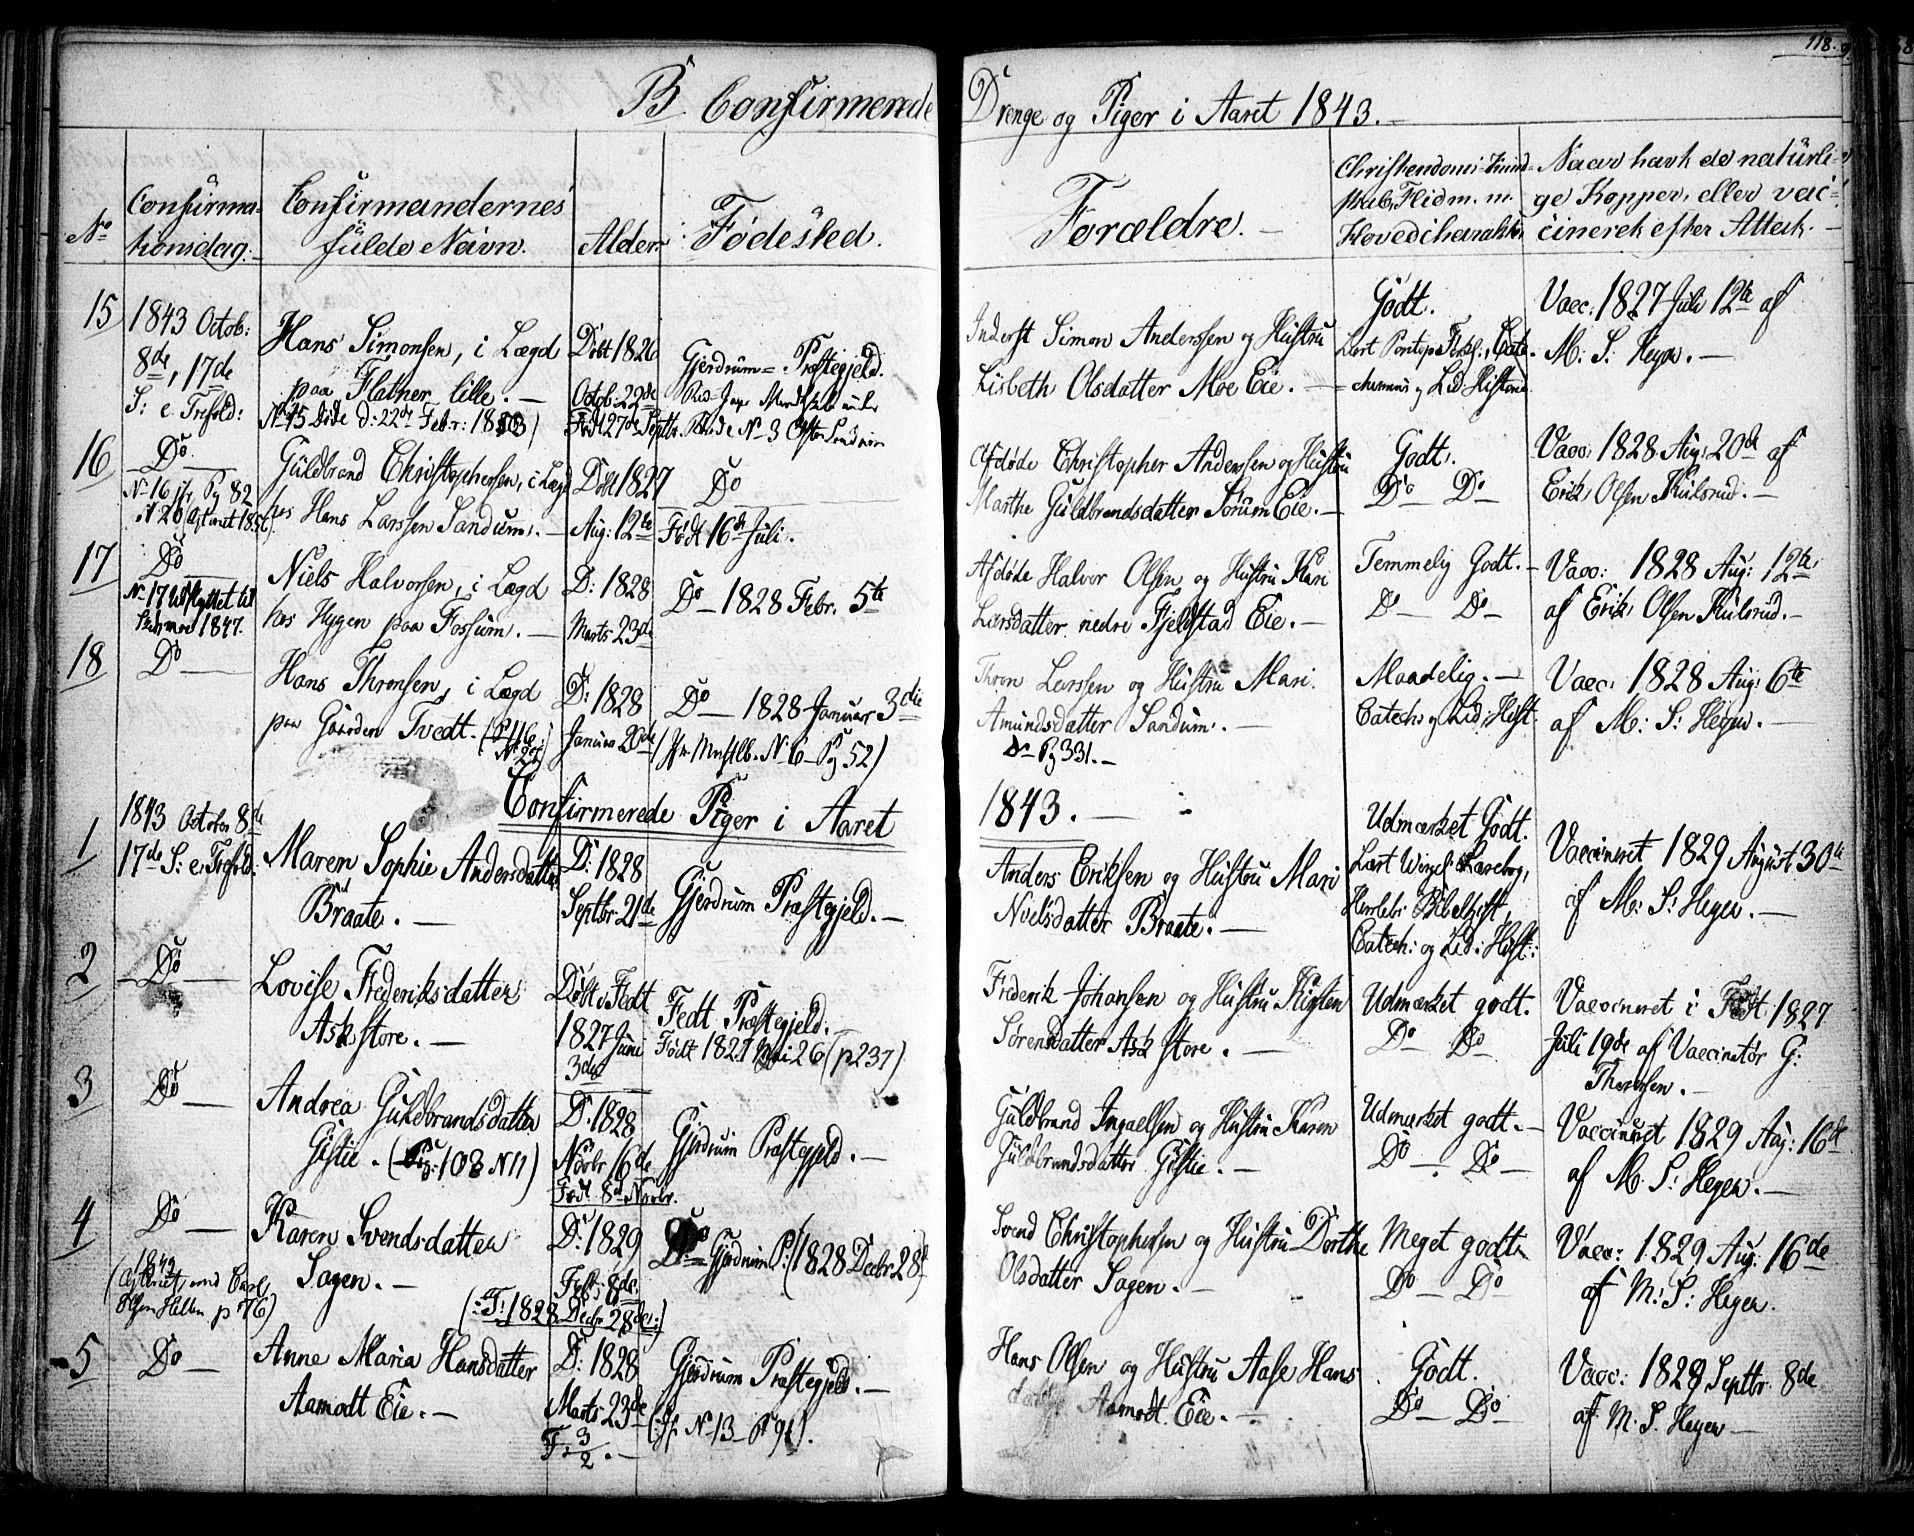 118.
B. Confirmerede Drenge og Piger i Aaret 1843.
No
Confirma-
tionsdag.
Confirmandernes
fulde Navn.
Alder.
Fødested.
Forældre.
Christendoms-Kund-
skab, Flid m. m.
Hovedcharakter
Naar havt de naturli-
ge Kopper, eller vac-
cineret efter Attest.
15
1843 Octob:
8de, 17de
S: e. Trefold:
Hans Simonsen, i Lægd
paa Flatner lille. —
No 15 døde d: 22de Febr: 18
Døbt 1826
Octob: 22de
Født 27de Septbr.
Gjerdrum Præstegjeld.
Inderst Simon Anderssen og Hustru
Lisbeth Olsdatter Moe Eie. —
Godt.
Lært Pontop: Forkl:, Cate-
chismus og Lid: Historie
Vacc: 1827 Juli 12te af
M: S: Heyer. —
16
Do —
No 16 Pg 82
No 20
Guldbrand Christophersen, i Lægd
hos Hans Larssen Sandum. —
Døbt 1827
Aug: 12te
Do
Født 16de Juli.
Afdøde Christopher Anderssen og Hustru
Marthe Guldbrandsdatter Sørum Eie. —
Godt.
Do — Do —
Vacc: 1828 Aug: 20de af
Erik Olsen Kulsrud. —
17
Do
No 17 udflyttet til
1847.
Niels Halvorsen, i Lægd
hos Hygen paa Fossum. —
D: 1828
Marts 23de
Do — 1828 Febr. 5te
Afdøde Halvor Olsen og Hustru Kari
Larsdatter nedre Fjeldstad Eie. —
Temmelig Godt. —
Do — Do —
Vacc: 1828 Aug: 12te
af Erik Olsen Kulsrud. —
18
Do —
Hans Thronsen, i Lægd
paa Gaarden Tvedt.
D: 1828
Januar 20de
Do — 1828 Januar 3die
No 6 — Pg 52)
Thron Larssen og Hustru Mari
Amundsdatter Sandum. —
Do Pg 331. —
Maadelig. —
Catech: og Lid: Hist.
Vacc: 1828 Aug: 6te
af M: S: Heyer. —
Confirmerede Piger i Aaret 1843. —
1
1843 October 8de
17de S: e. Trefold:
Maren Sophie Andersdatter
Braate. —
D: 1828
Septbr 21de
Gjerdrum Præstegjeld. —
Anders Eriksen og Hustru Mari
Nielsdatter Braate. —
Udmærket Godt.
Lært Wexels Lærebog,
Herslebs Bibelhist,
Catech: og Lid: Hist:
Vaccineret 1829 August 30te
af M: S: Heyer. —
2
Do —
Lovise Frederiksdatter
Ask store. —
Døbt i Fedt
1827 Juni
3de
Fedt Præstegjeld. —
Født 1827 Mai 26 (p 237)
Frederik Johansen og Hustru Kirsten
Sørensdatter Ask store. —
Udmærket godt.
Do — Do —
Vaccineret i Fedt 1827
Juli 19de af Vaccinatør G:
3
Do —
Andrea Guldbrandsdatter
Gistie. (Pg: 108 N 11)
D: 1828
Novbr 16de
Født 8de Novbr.
Gjerdrum Præstegjeld. —
Guldbrand Ingaelsen og Hustru Karen
Guldbrandsdatter Gistie. —
Udmærket godt. —
Do — Do —
Vaccineret 1829 Aug: 16de
af M. S: Heyer. —
4
Do —
1849
p 76)
Karen Svendsdatter
Sagen. —
D: 1829
Feb: 8de
(:F: 1828 Decbr 28de:)
Gjerdrum P: (1828 Decbr 28de
Svend Christophersen og Hustru Dorthe
Olsdatter Sagen. —
Meget godt
Do — Do
Vacc: 1829 Aug: 16de
af M: S: Heyer.
5
Do —
Anne Maria Hansdatter
Aamodt Eie. —
D: 1828
Marts 23de
F. 3/2. —
Gjerdrum Præstegjeld. —
No 13 — P 91).
Hans Olsen og Hustru Aase Hans
datter Aamodt Eie. —
Godt.
Do — Do —
Vacc: 1829 Septbr. 8de
af M. S. Heyer —